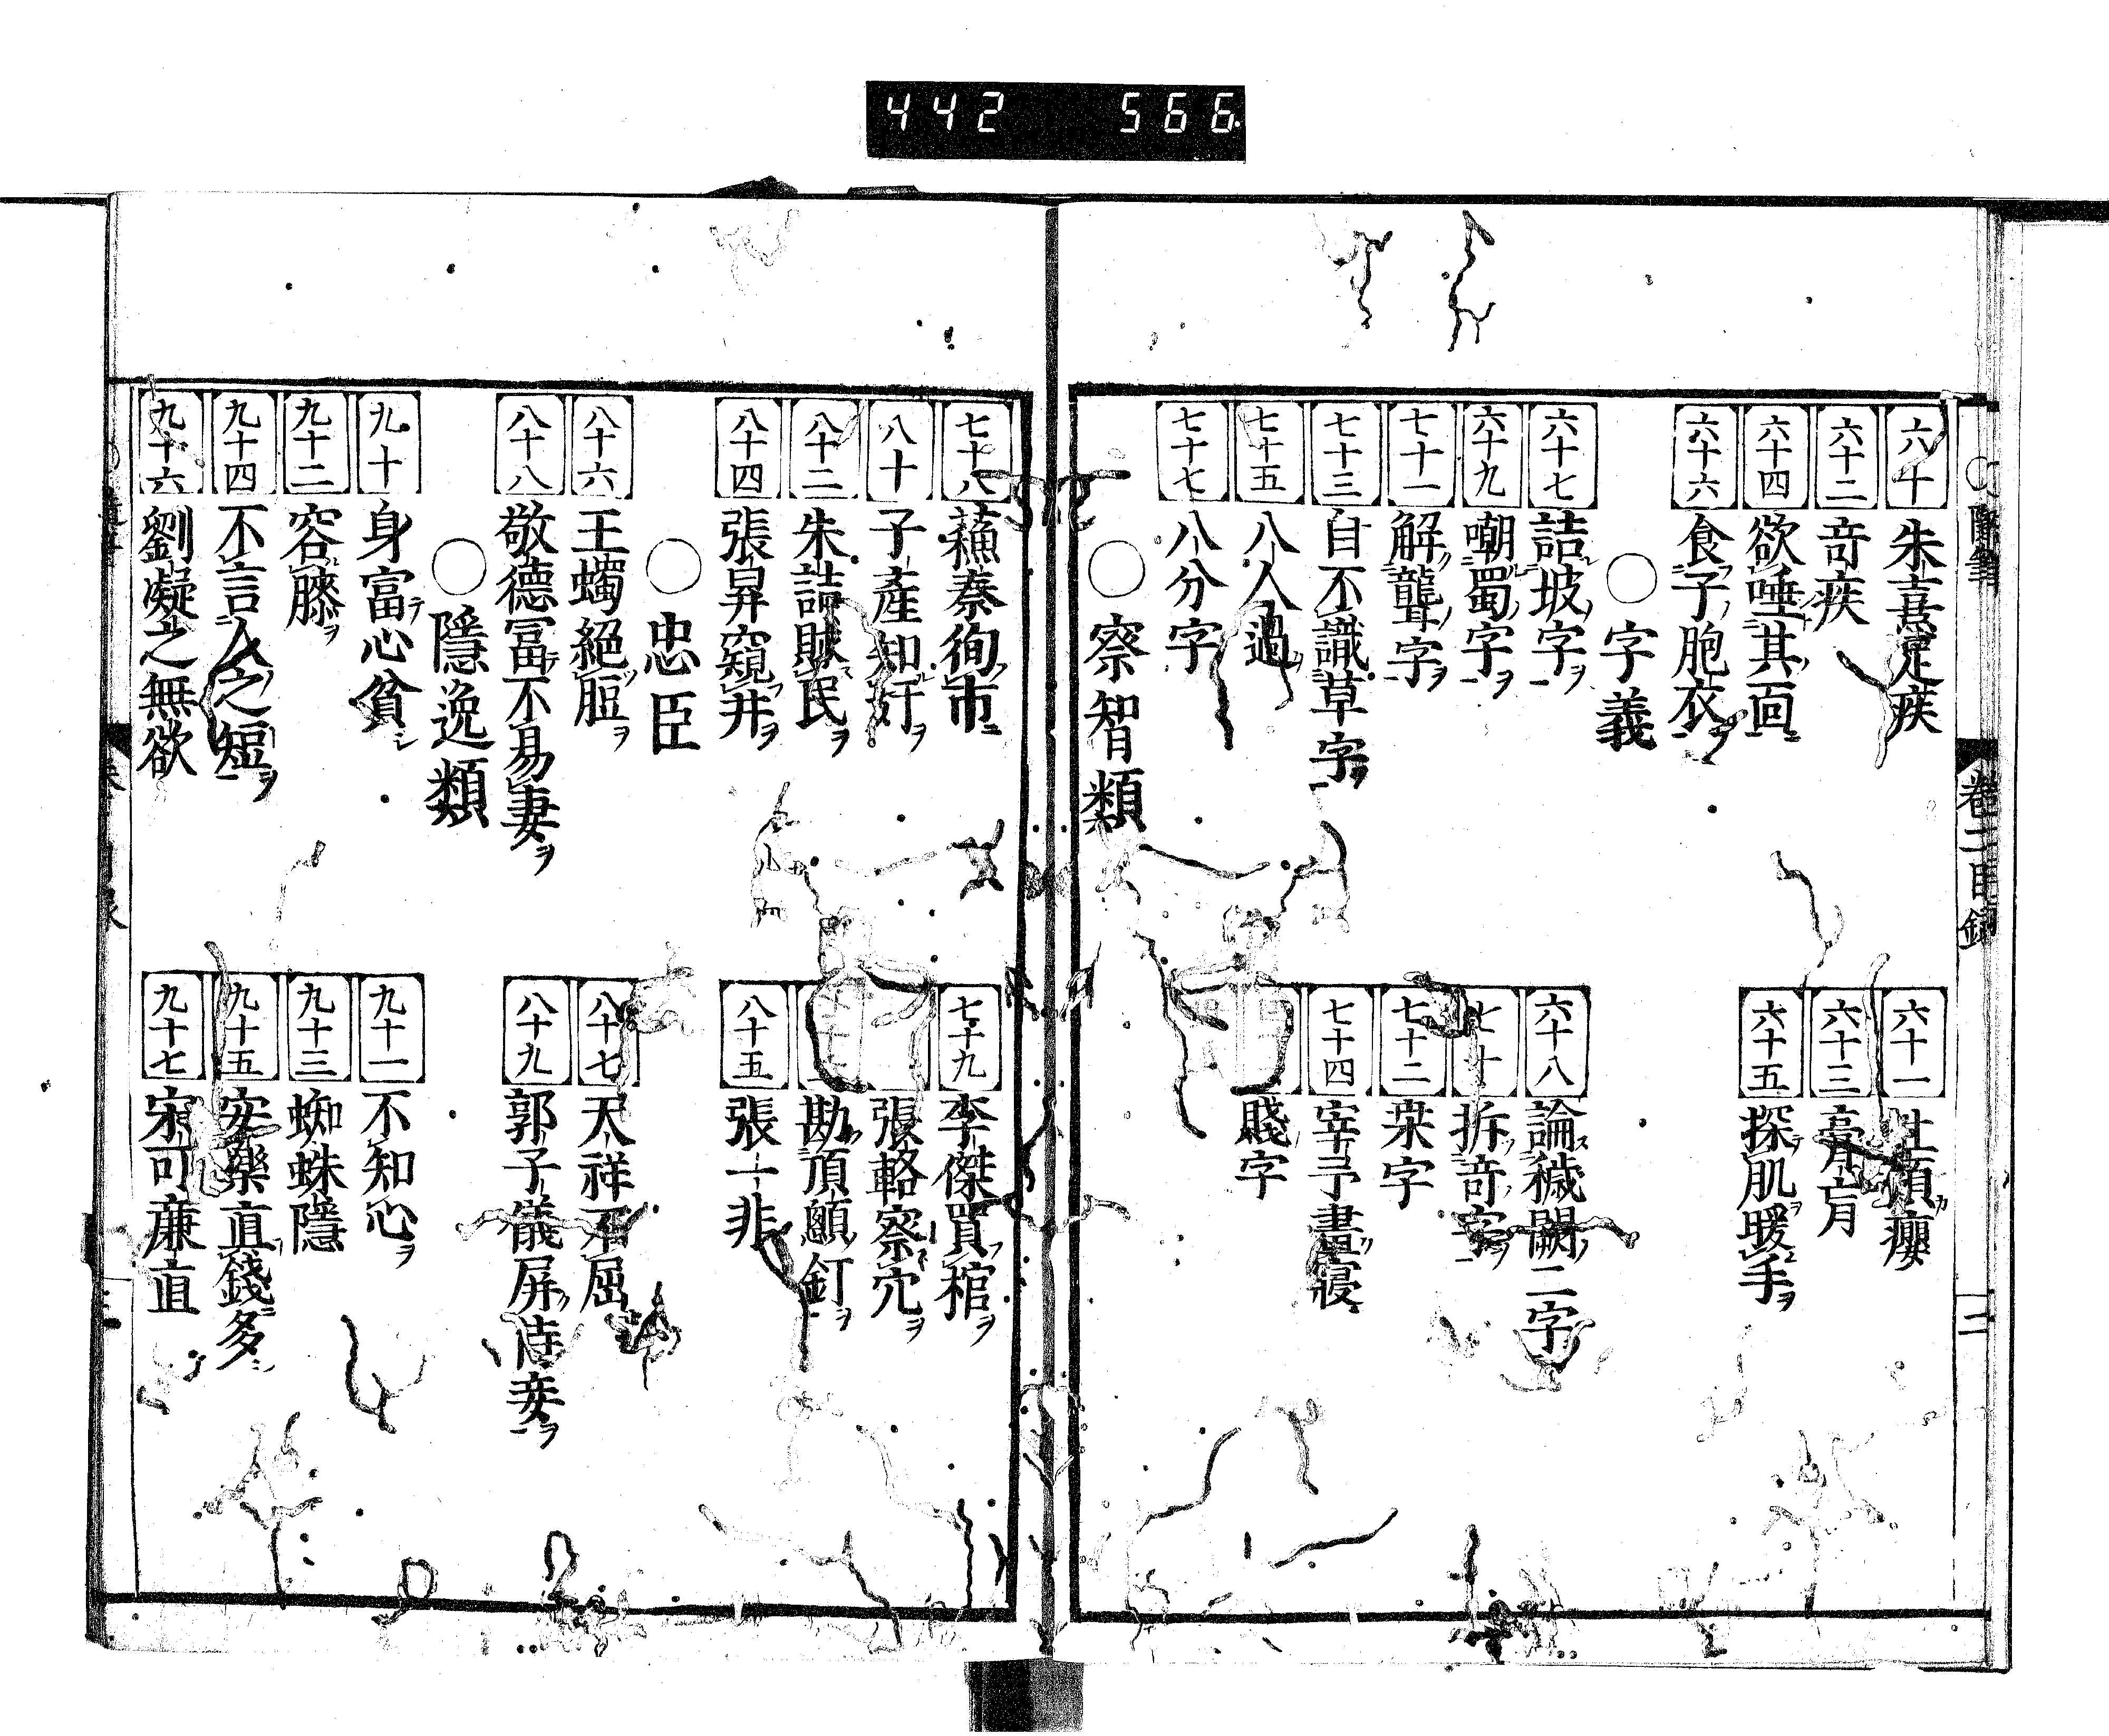 442 566
卷二目錄
二
六十 朱熹足疾
六十一 杜預癭
六十二 奇疾
六十三 膏肓
六十四 欲唾其面ニ
六十五 探肌ヲ暖手ヲ
六十六 食子ノ胞衣ヲ
○字義
六十七 詰坡字ヲ
六十八 論穢闕ノ二字ヲ
六十九 嘲蜀字ヲ
七十 拆奇字ヲ
七十一 解聾字ヲ
七十二 桒字
七十三 自不識草字ヲ
七十四 宰予晝寢
七十五 八人過
賤字
七十七 八分字
○察智類
七十八 蘓秦徇市ニ
七十九 李傑買棺ヲ
八十 子產知奸ヲ
張輅察穴ヲ
八十二 朱詰賕民ヲ
勘頂顱釘ヲ
八十四 張昇窺井ヲ
八十五 張一非
○忠臣
八十六 王蠋絕脰ヲ
八十七 天祥不屈
八十八 敬德冨不易妻ヲ
八十九 郭子儀屏侍妾ヲ
○隱逸類
九十 身富テ心貧シ
九十一 不知心ヲ
九十二 容膝ヲ
九十三 蜘蛛隱
九十四 不言人之短ヲ
九十五 安樂直錢多シ
九十六 劉凝之無欲
九十七 宋可亷直